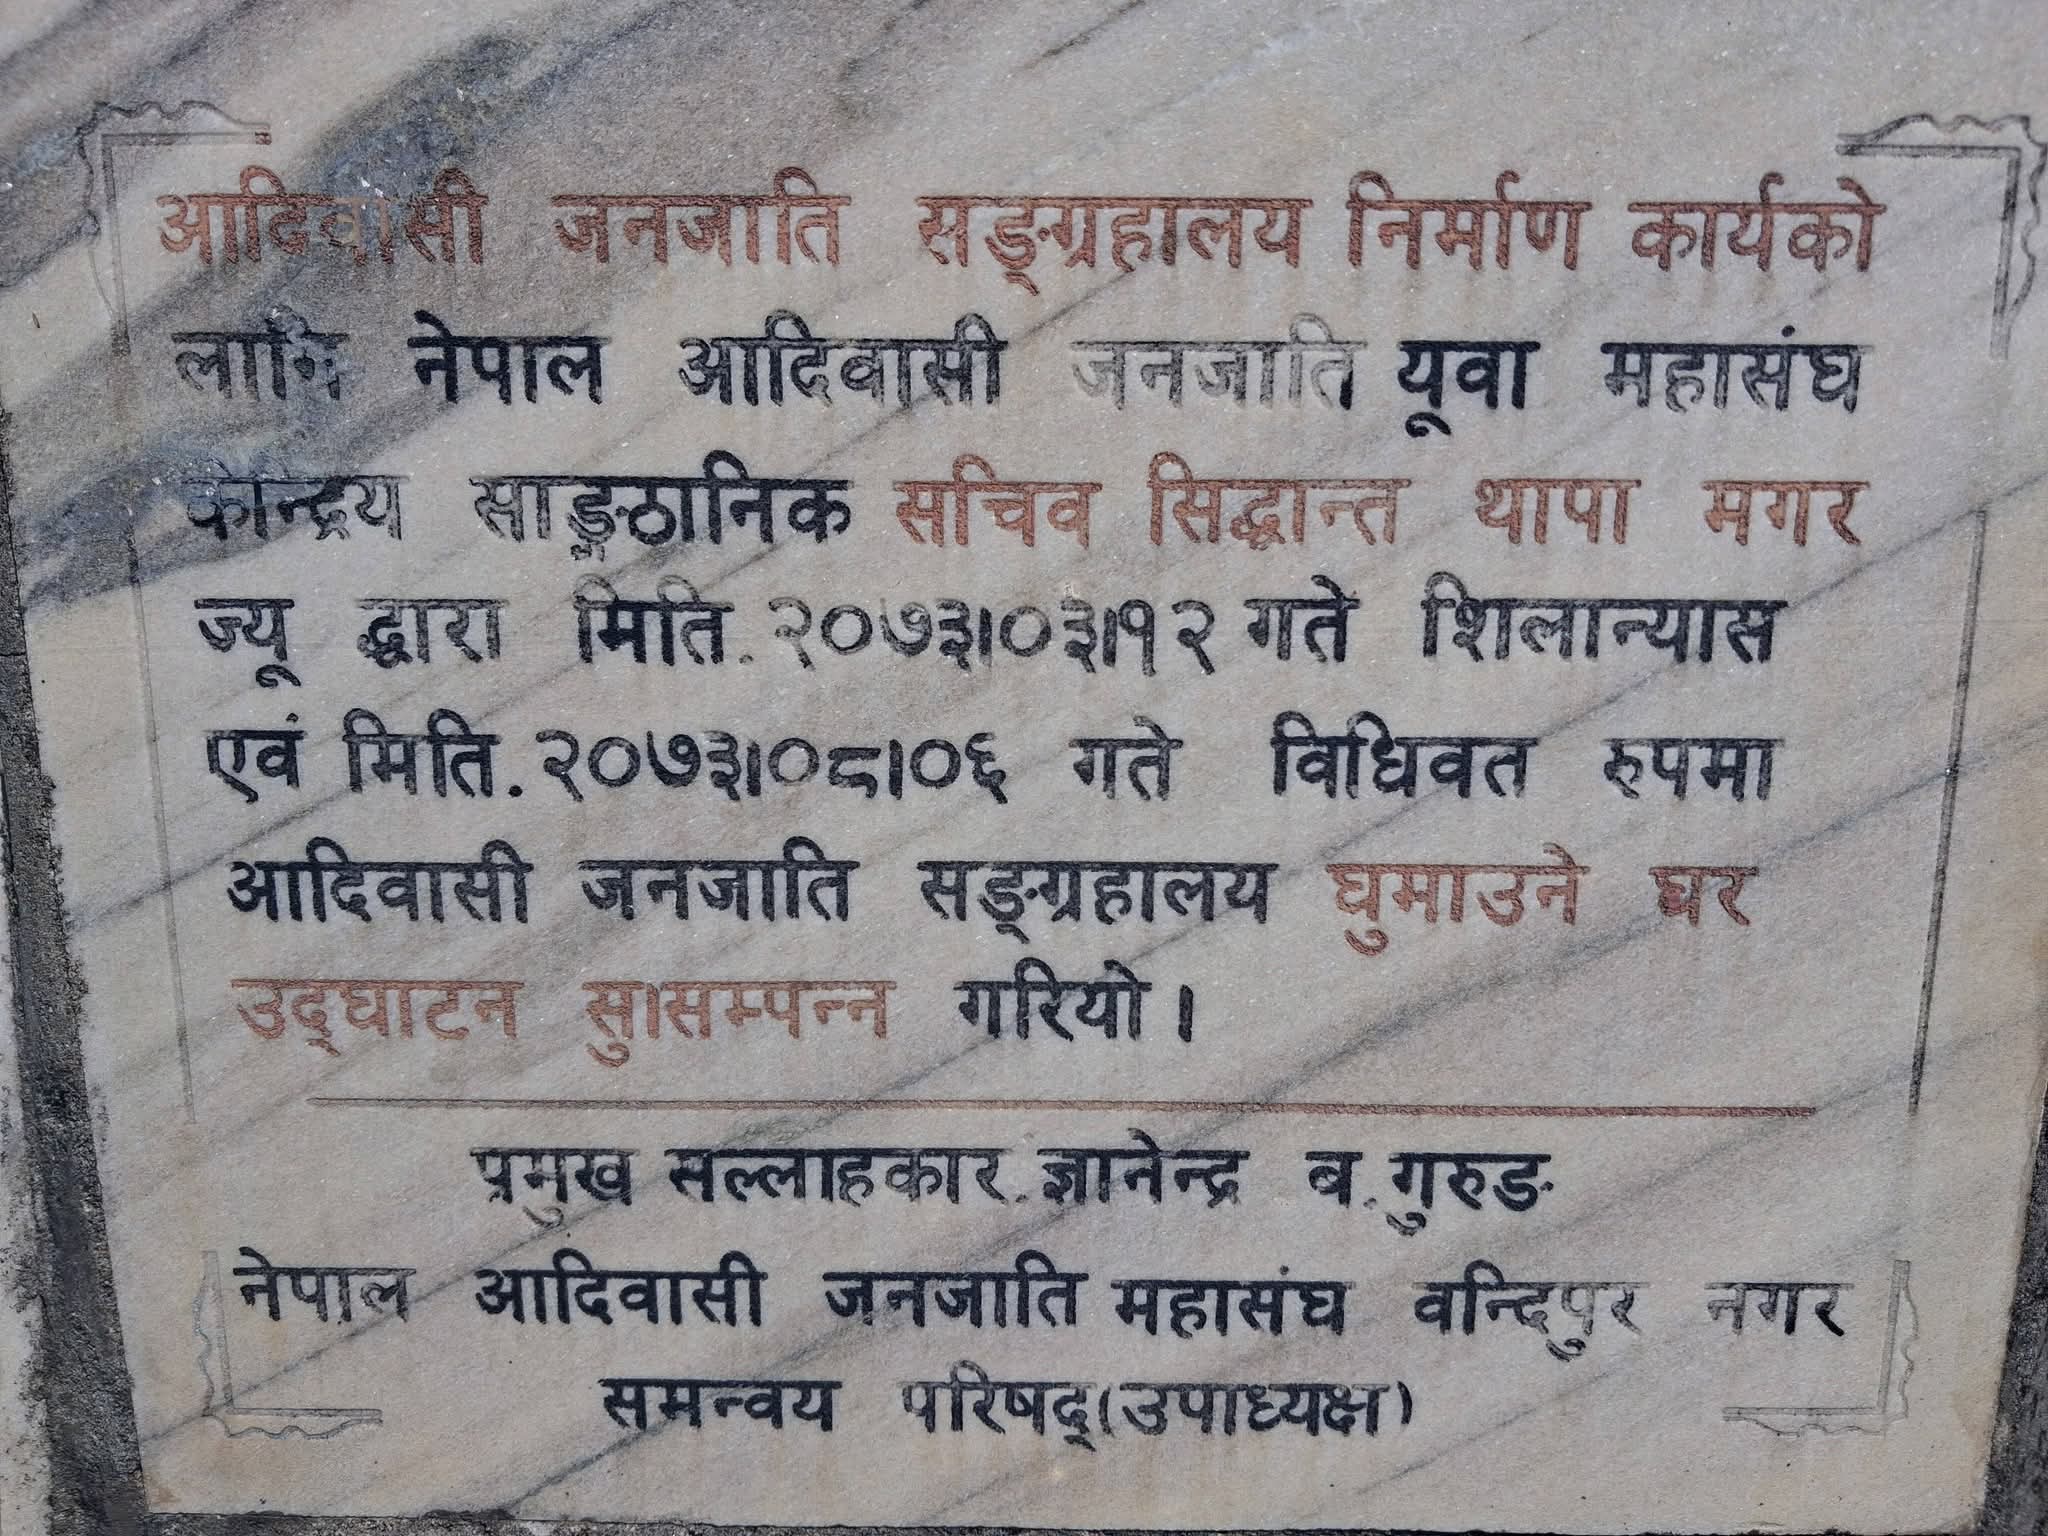 आदिवासी जनजाति सङ्ग्रहालय निर्माण कार्यको
लागि नेपाल आदिवासी जनजाति यूवा महासंघ
केन्द्रिय साङ्ठानिक सचिव सिद्धान्त थापा मगर
ज्यू द्धारा मिति. २०७३।०३।१२ गते शिलान्यास
एवं मिति. २०७३।०८।०६ गते विधिवत रुपमा
आदिवासी जनजाति सङ्ग्रहालय घुमाउने घर
उद्घाटन सु।सम्पन्न गरियो।
प्रमुख सल्लाहकार. ज्ञानेन्द्र ब. गुरुङ
नेपाल आदिवासी जनजाति महासंघ वन्दिपुर नगर
समन्वय परिषद्(उपाध्यक्ष)